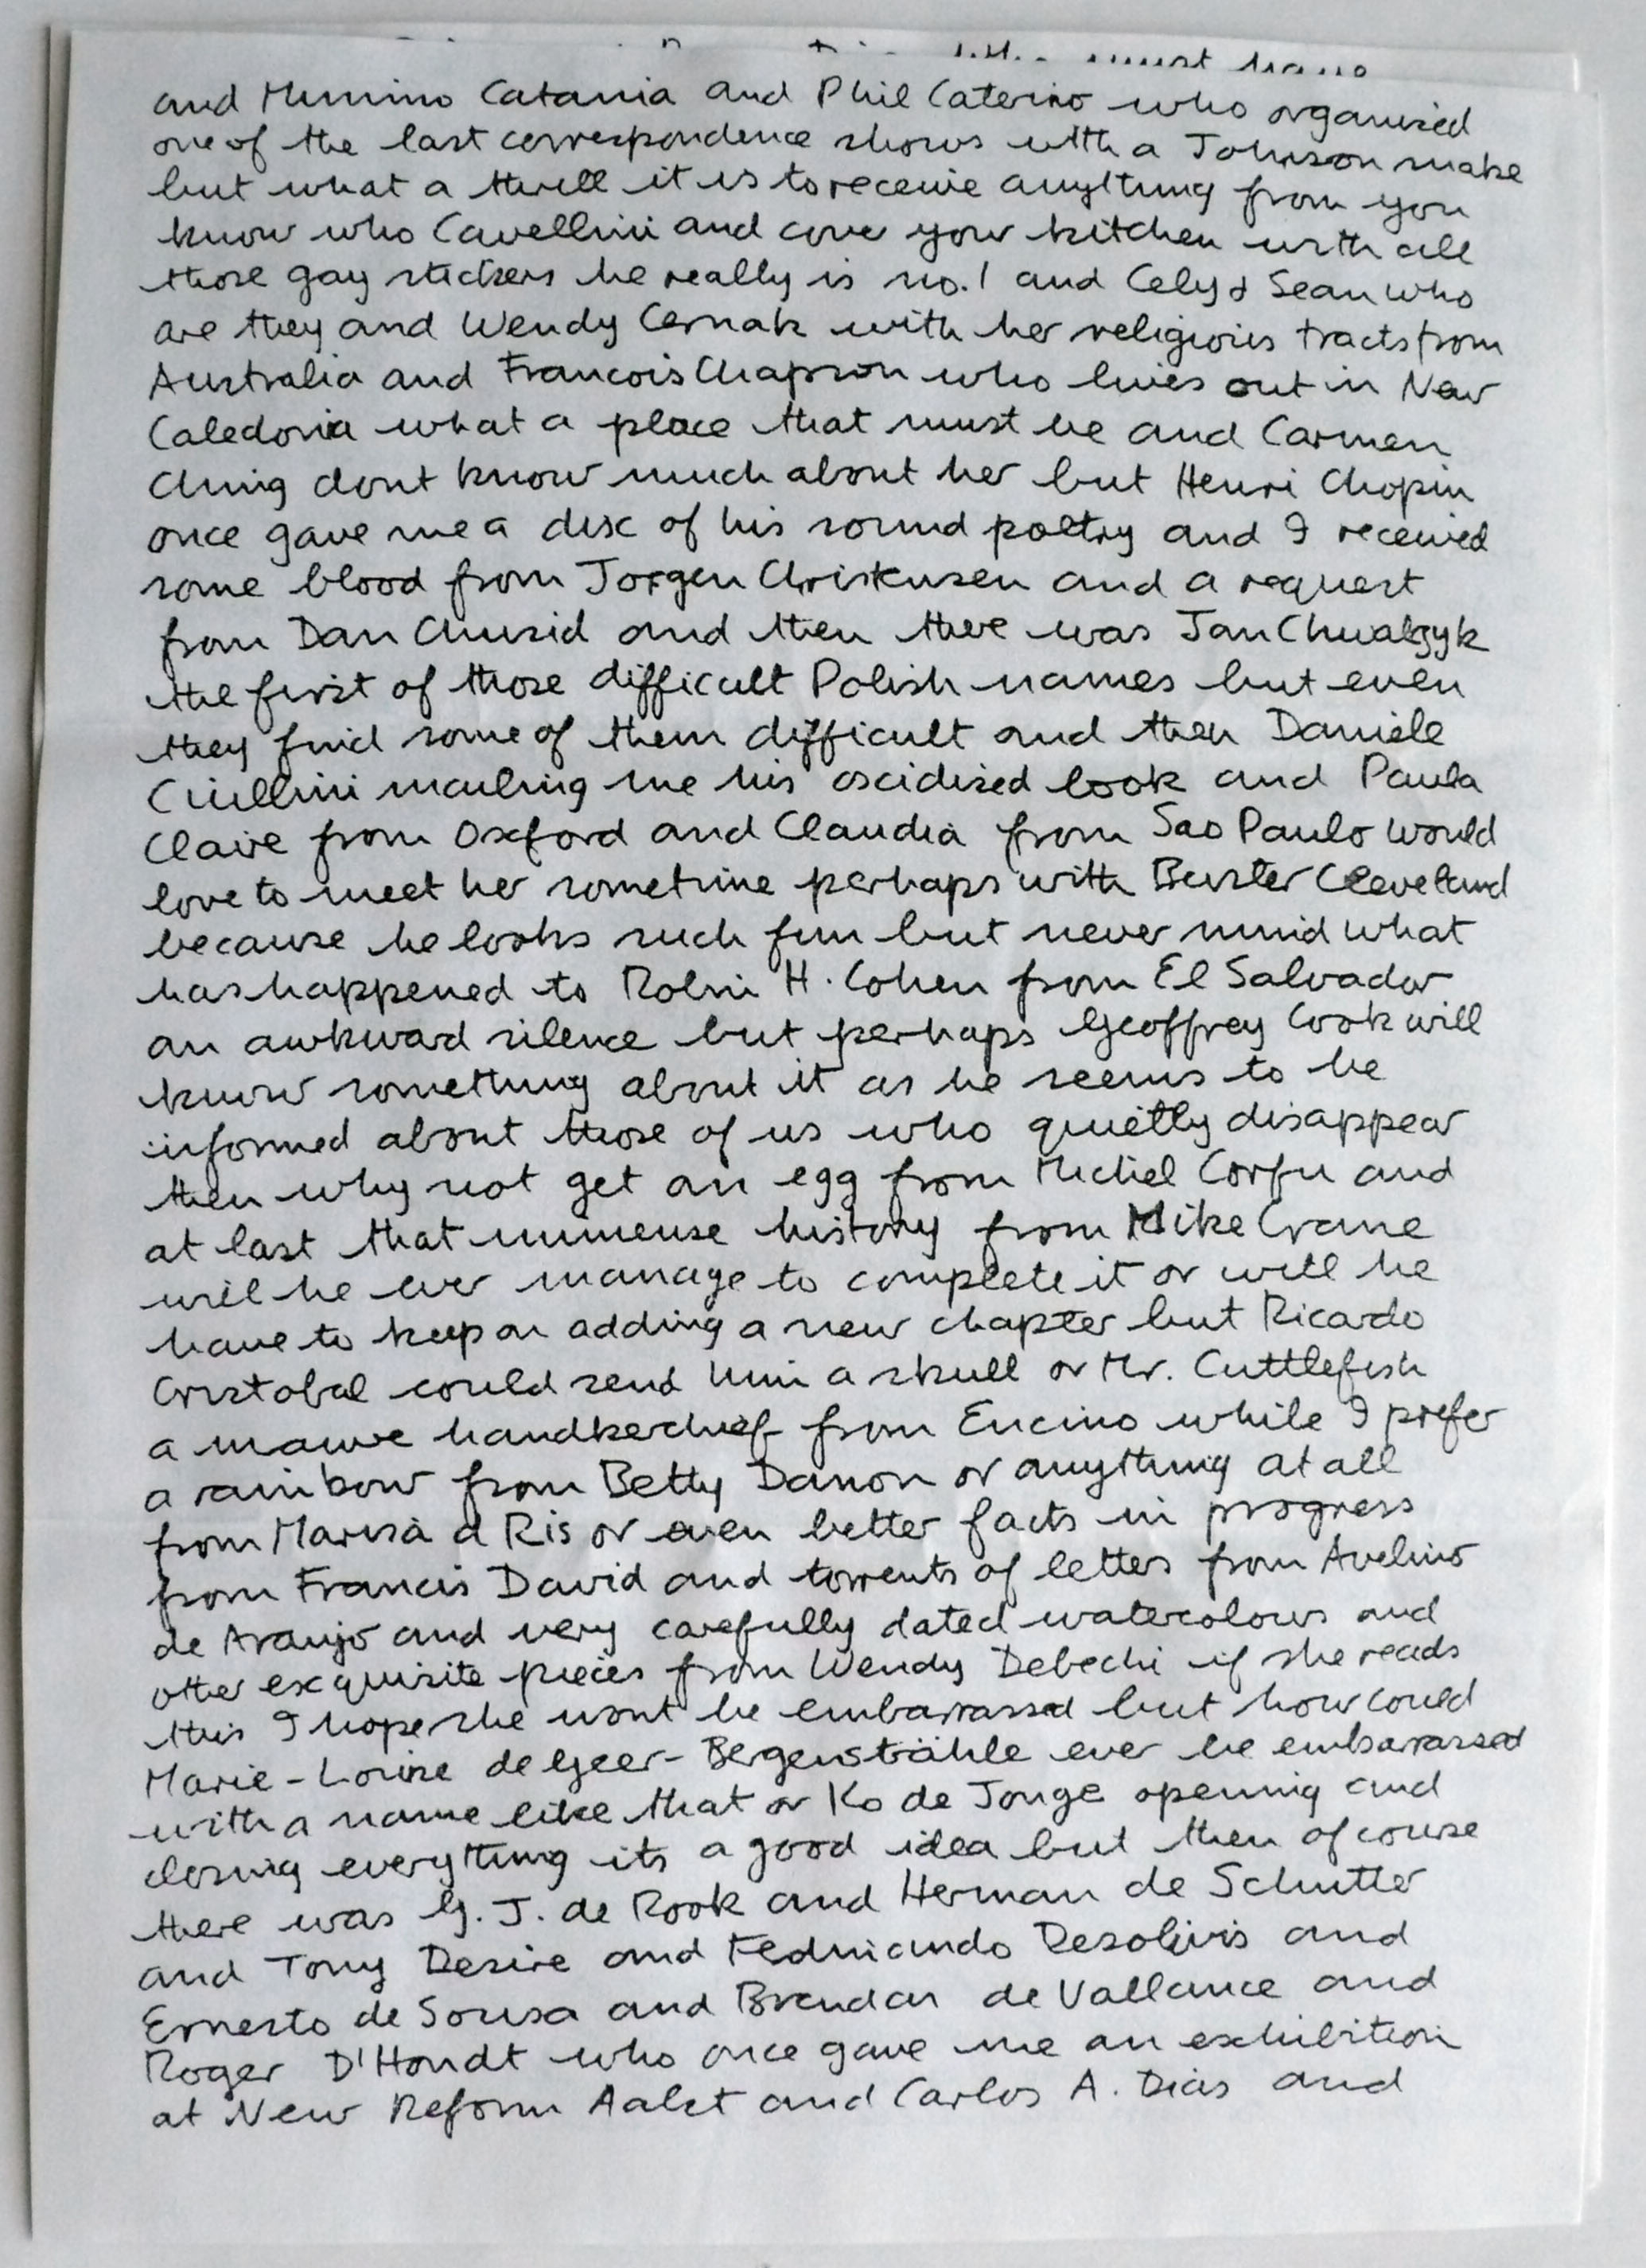 must have
and Mimmo Catania and Phil Caterino who organised
one of the last correspondence shows with a Johnson snake
but what a thrill it is to receive anything from you
know who Cavellini and cover your kitchen with all
those gay stickers he really is no. 1 and Cely & Sean who
are they and Wendy Cernak with her religious tracts from
Australia and Francois Chapron who lives out in New
Caledonia what a place that must be and Carmen
Ching dont know much about her but Henri Chopin
once gave me a disc of his sound poetry and I received
some blood from Jorgen Christensen and a request
from Dan Chusid and then there was Jan Chwalczyk
the first of those difficult Polish names but even
they find some of them difficult and then Daniele
Ciullini mailing me his oxidised look and Paula
Claire from Oxford and Claudia from Sao Paulo would
love to meet her sometime perhaps with Buster Cleveland
because he looks such fun but never mind what
has happened to Robin H. Cohen from El Salvador
an awkward silence but perhaps Geoffrey Cook will
know something about it as he seems to be
informed about those of us who quietly disappear
then why not get an egg from Michel Corfu and
at last that immense history from Mike Crane
will he ever manage to complete it or will he
have to keep on adding a new chapter but Ricardo
Cristobal could send him a skull or Mr. Cuttlefish
a mauve handkerchief from Encino while I prefer
a rainbow from Betty Danon or anything at all
from Marisa d Ris or even better facts in progress
from Francis David and torrents of letters from Avelino
de Araujo and very carefully dated watercolours and
other exquisite pieces from Wendy Debechi if she reads
this I hope she wont be embarrassed but how could
Marie-Louise de Geer-Bergenstråhle ever be embarrassed
with a name like that or Ko de Jonge opening and
closing everything its a good idea but then of course
there was G. J. de Rook and Herman de Schutter
and Tony Desire and Fedinando Desolivis and
Ernesto de Sousa and Brendan de Vallance and
Roger D'Hondt who once gave me an exhibition
at New Reform Aalst and Carlos A. Dias and